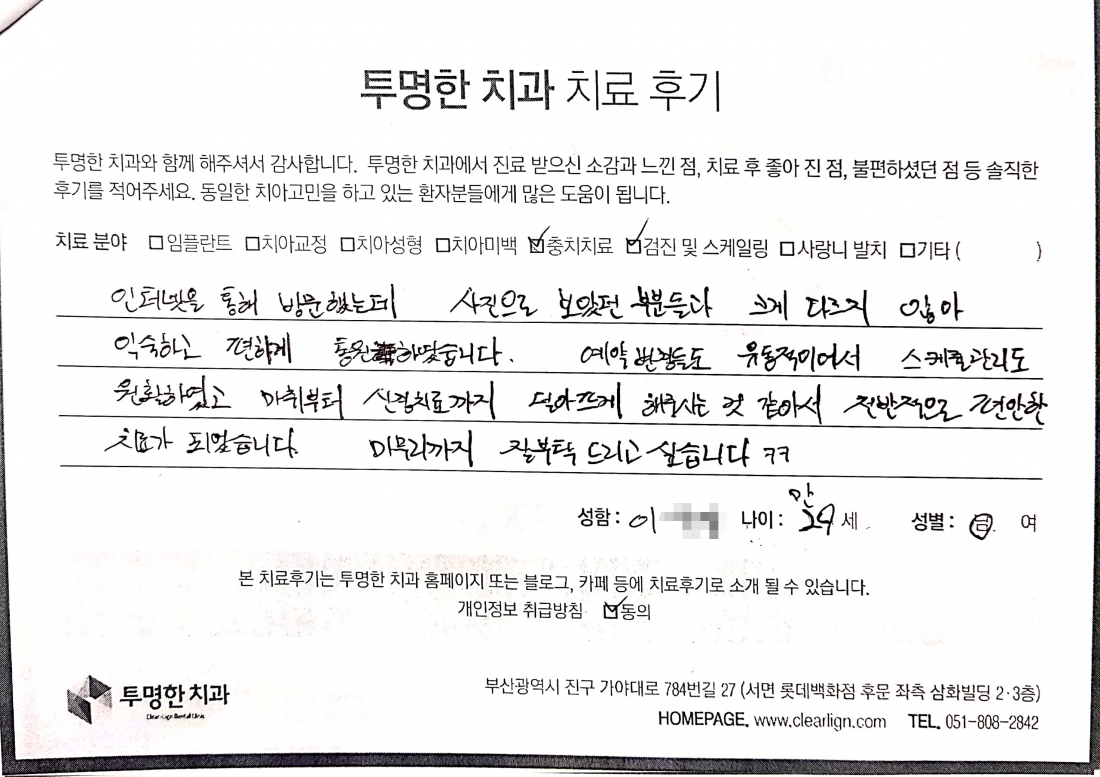 투명한 치과 치료 후기
투명한 치과와 함께 해주셔서 감사합니다. 투명한 치과에서 진료 받으신 소감과 느낀 점, 치료 후 좋아 진 점, 불편하셨던 점 등 솔직한
후기를 적어주세요. 동일한 치아고민을 하고 있는 환자분들에게 많은 도움이 됩니다.
치료 분야 □임플란트 □치아교정 □치아성형 □치아미백 ☑충치치료 ☑검진 및 스케일링 □사랑니 발치 □기타 ( )
인터넷을 통해 방문했는데 사진으로 보았던 부분들과 크게 다르지 않아
익숙하고 편하게 통원하였습니다. 예약 변경들도 유동적이어서 스케쥴관리도
원활하였고 마취부터 신경치료까지 안아프게 해주시는 것 같아서 전반적으로 편안한
치료가 되었습니다. 마무리까지 잘부탁 드리고 싶습니다 ㅋㅋ
성함 : 이 나이 : 만 29 세 성별 : 남 여
본 치료후기는 투명한 치과 홈페이지 또는 블로그, 카페 등에 치료후기로 소개 될 수 있습니다.
개인정보 취급방침 ☑동의
투명한 치과
Clear-Lign Dental Clinic
부산광역시 진구 가야대로 784번길 27 (서면 롯데백화점 후문 좌측 삼화빌딩 2·3층)
HOMEPAGE. www.clearlign.com TEL. 051-808-2842